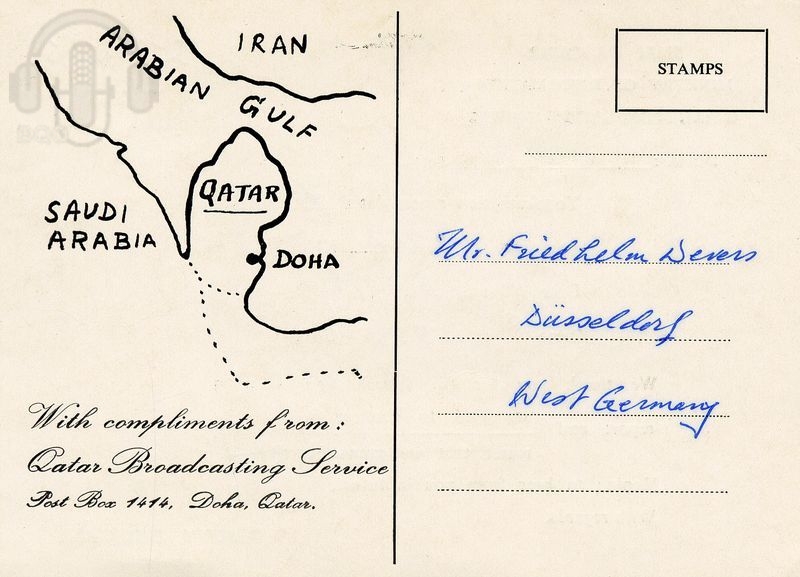 IRAN
ARABIAN
GULF
QATAR
SAUDI
ARABIA
DOHA
With compliments from:
Qatar Broadcasting Service
Post Box 1414, Doha, Qatar.
STAMPS
Mr. Friedhelm Wevers
Düsseldorf
West Germany